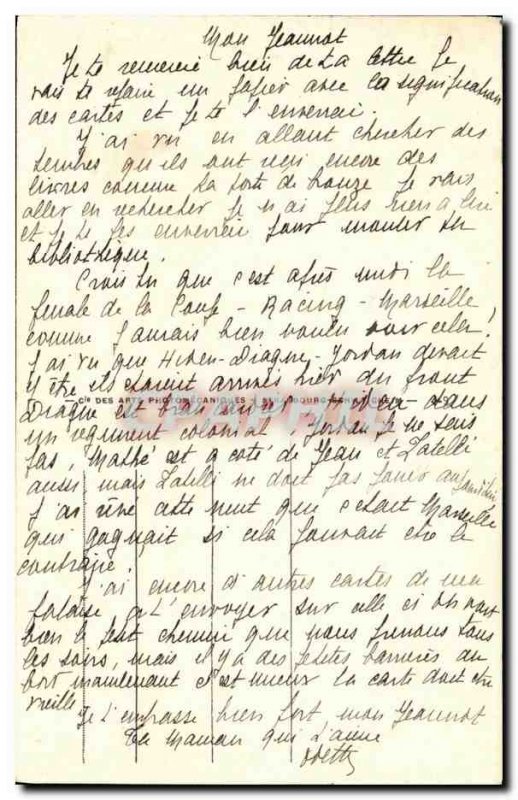 Mon Jeannot
Je te remercie bien de ta lettre je
vais te refaire un papier avec la signification
des cartes et je te l'enverrai.
J'ai vu en allant chercher des
timbres qu'ils ont reçu encore des
livres comme la porte de bronze je vais
aller en rechercher je n'ai plus rien a lire
et je te les enverrai pour monter ta
bibliothèque.
Crois tu que c'est après midi la
finale de la Coupe - Racing - Marseille,
comme j'aurais bien voulu voir cela!
J'ai vu que Hiden - Diagne - Jordan devait
y être ils étaient arrivés hier du front
Diagne est dans un
un régiment colonial, Jordan je ne sais
pas, Mathé est a coté de Jean et Zatelli
aussi mais Zatelli ne doit pas jouer aujourd'hui
J'ai rêvé cette nuit que c'était Marseille
qui gagnait si cela pouvait être le
contraire.
J'ai encore d'autres cartes de ma
falaise a t'envoyer sur celle ci on voit
bien le petit chemin que nous prenons tous
les soirs, mais il y a des petites barrières au
bort maintenant c'est mieux la carte doit être
vieille
Je t'embrasse bien fort, mon Jeannot
Ta Maman qui t'aime
Odette
Cie DES ARTS PHOTOMÉCANIQUES